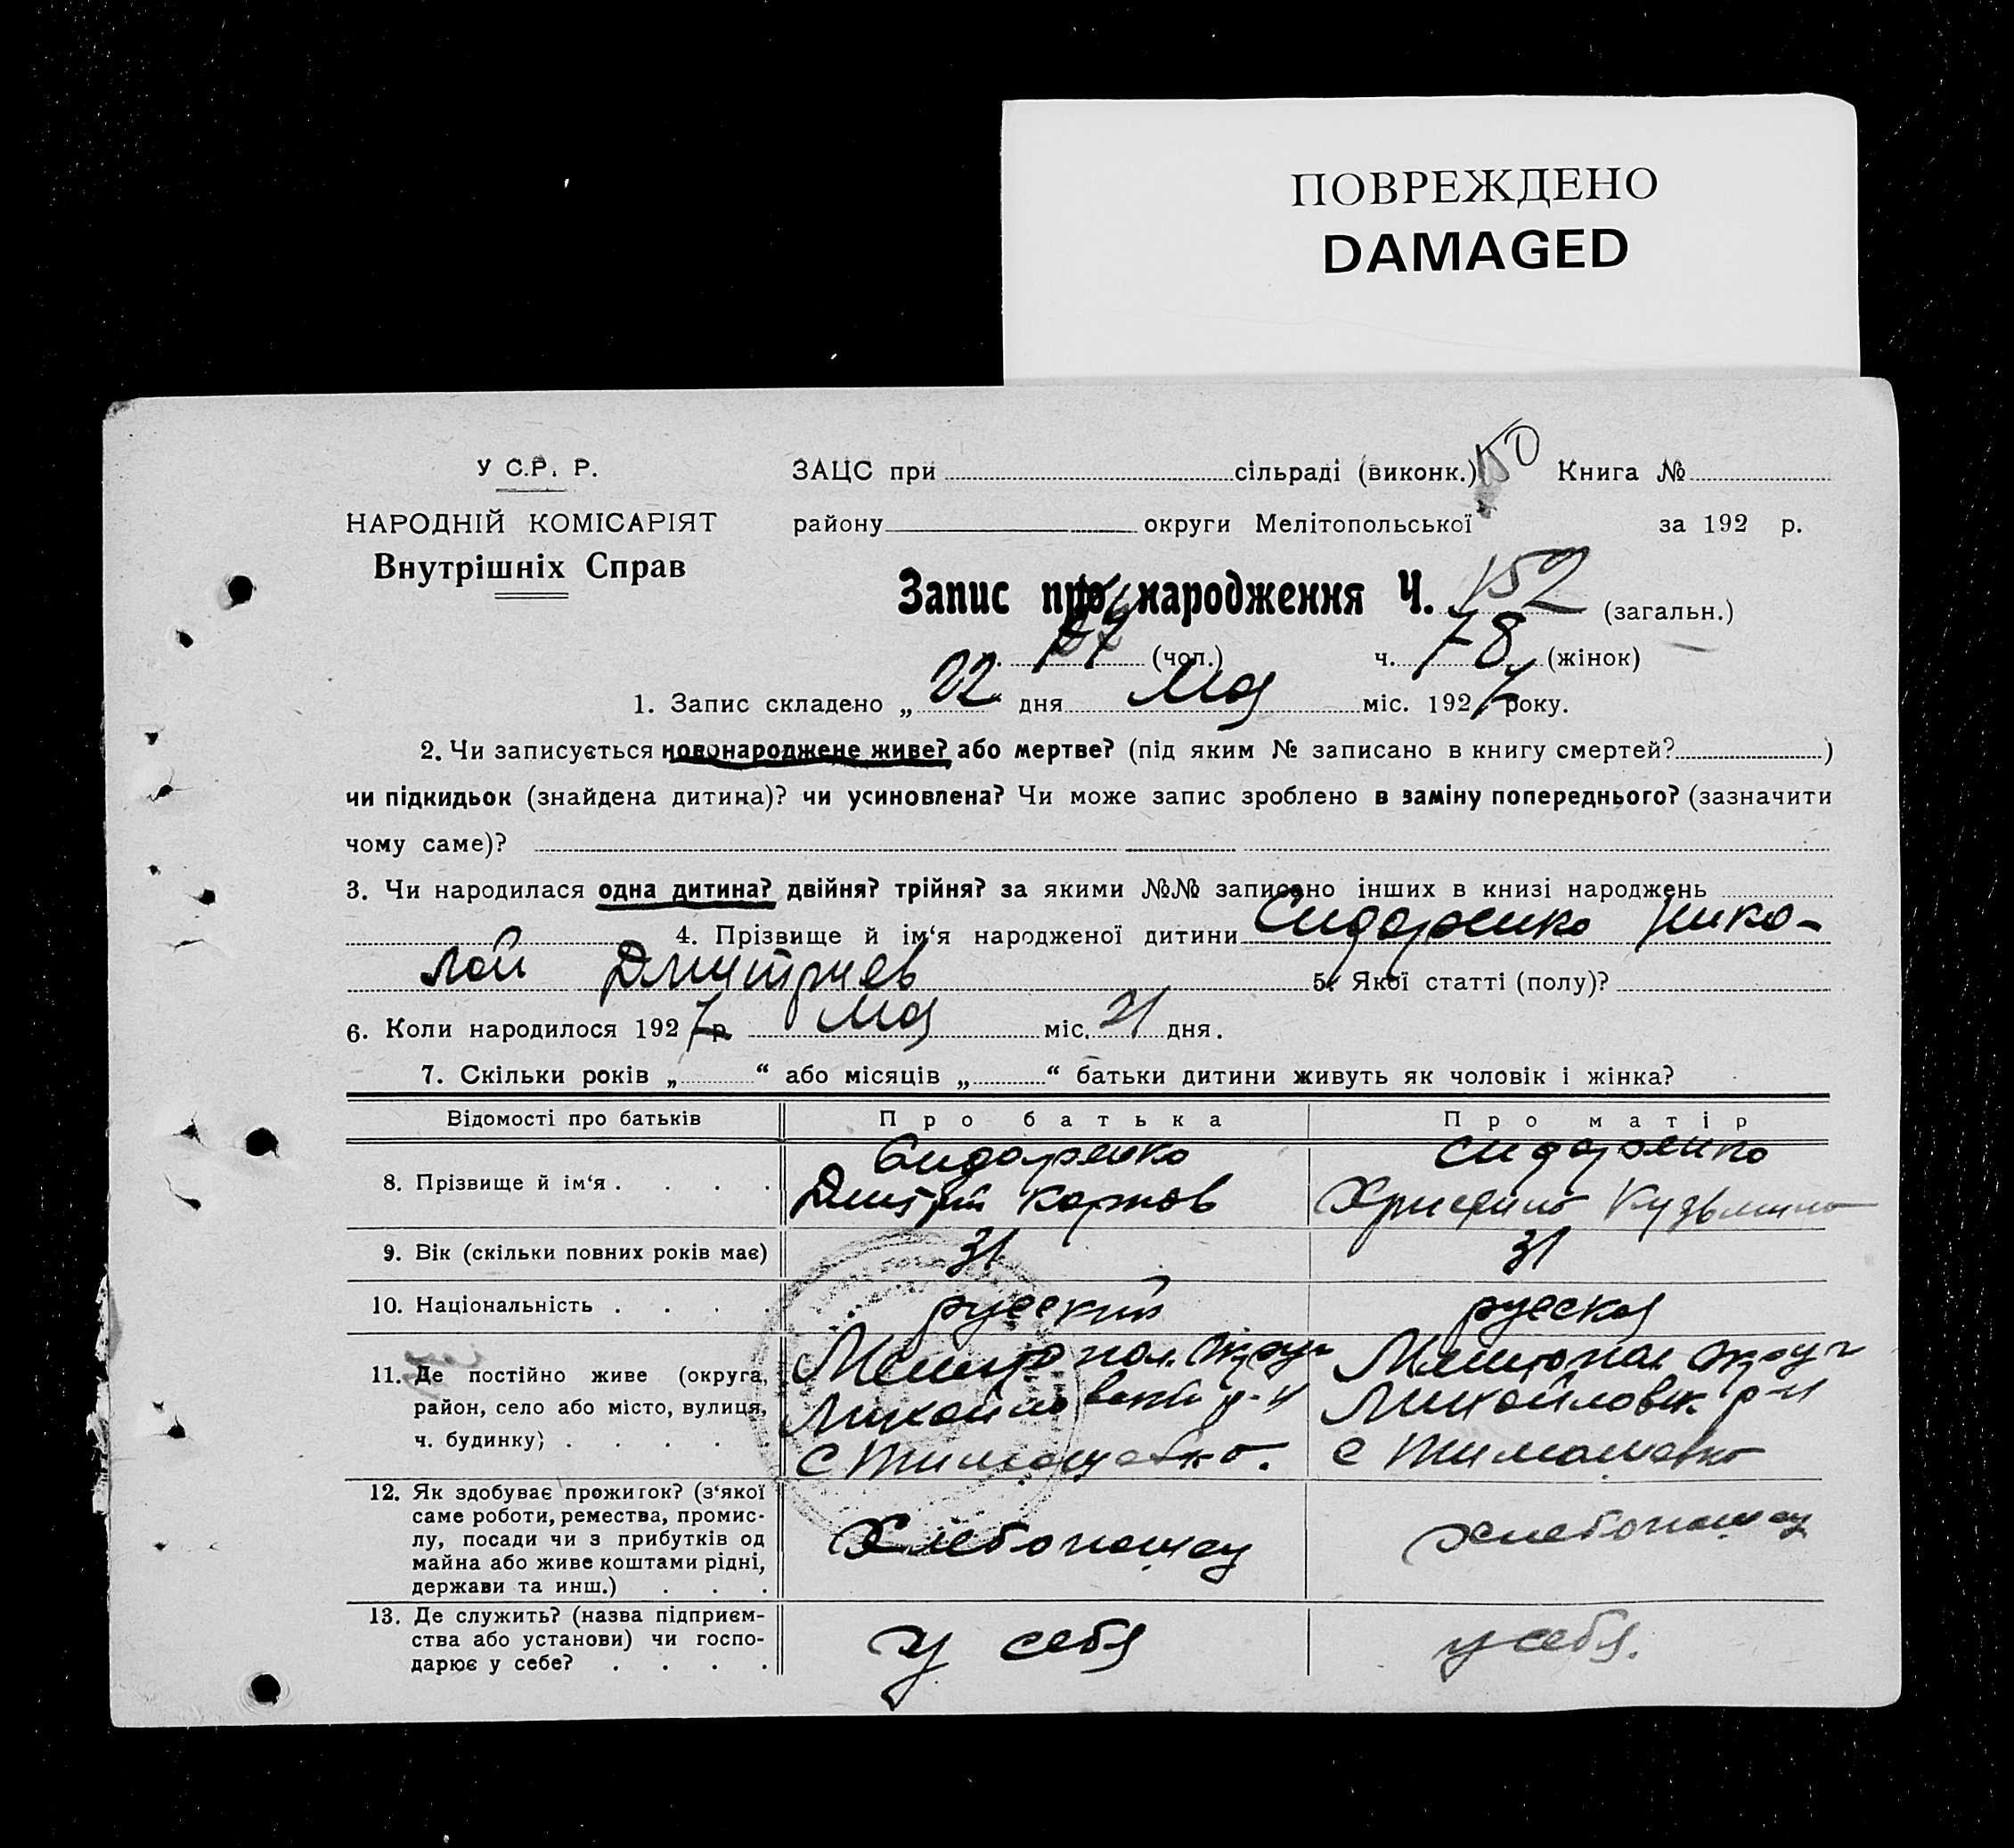 ПОВРЕЖДЕНО
DAMAGED
У С.Р. Р.
НАРОДНІЙ КОМІСАРІЯТ
Внутрішніх Справ
ЗАЦС при сільраді (виконк.) 150 Книга №
району округи Мелітопольської за 192 р.
Запис про народження Ч. 152 (загальн.)
(чол.) ч. 78 (жінок)
1. Запис складено „ 22 дня мая міс. 1927 року.
2. Чи записується новонароджене живе? або мертве? (під яким № записано в книгу смертей? )
чи підкидьок (знайдена дитина)? чи усиновлена? Чи може запис зроблено в заміну попереднього? (зазначити
чому саме)?
3. Чи народилася одна дитина? двійня? трійня? за якими №№ записано інших в книзі народжень
4. Прізвище й ім‘я народженої дитини Сидоренко Нико-
лай Дмитриев 5. Якої статті (полу)?
6. Коли народилося 1927 р. мая міс. 21 дня.
7. Скільки років „ “ або місяців „ “ батьки дитини живуть як чоловік і жінка?
Відомості про батьків Про батька Про матір
8. Прізвище й ім‘я . . . . Сидоренко Сидоренко
Дмитрий Кузьмина
9. Вік (скільки повних років має) 31 31
10. Національність . . . . русский русская
11. Де постійно живе (округа, район, село або місто, вулиця, ч. будинку) . . . . .
Мелитопол. округ Мелитопол округ
Михайловский р-н Михайловск. р-н
с Тимошевка. с Тимошевка
12. Як здобуває прожиток? (з‘якої
саме роботи, ремества, промис-
лу, посади чи з прибутків од
майна або живе коштами рідні,
держави та инш.) . . .
Хлебопашец хлебопашец
13. Де служить? (назва підприєм-
ства або установи) чи госпо-
дарює у себе? . . . .
у себя у себя.